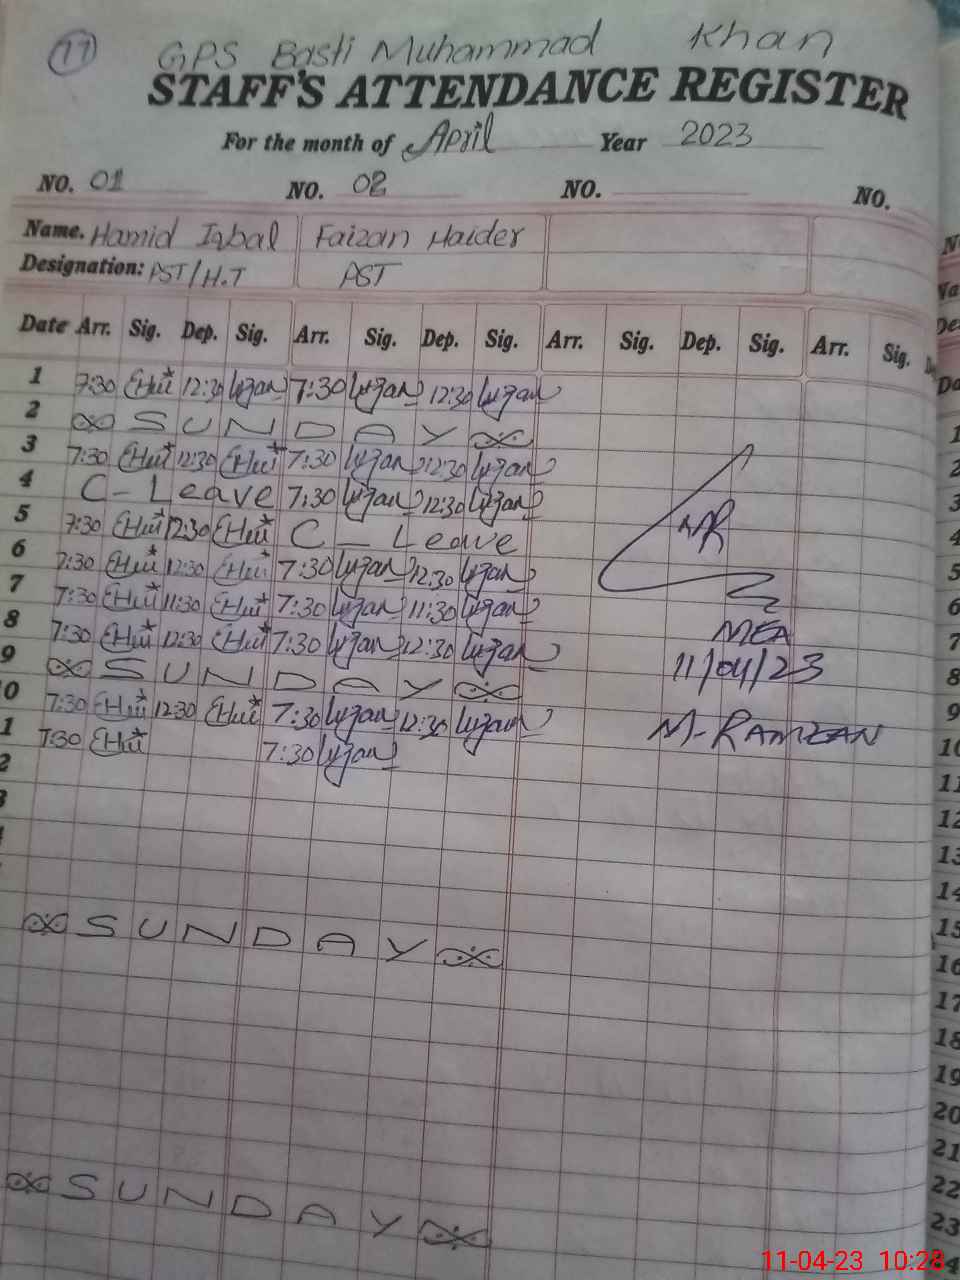 17
GPS Basti Muhammad Khan
STAFF'S ATTENDANCE REGISTER
For the month of April Year 2023
NO. 01 NO. 02 NO. NO.
Name. Hamid Iqbal Faizan Haider
Designation: PST/H.T PST
Date Arr. Sig. Dep. Sig. Arr. Sig. Dep. Sig. Arr. Sig. Dep. Sig. Arr. Sig.
1 7:30 12:30 7:30 12:30
2 SUNDAY
3 7:30 12:30 7:30 12:30
4 C-Leave 7:30 12:30
5 7:30 12:30 C-Leave
6 7:30 12:30 7:30 12:30
7 7:30 11:30 7:30 11:30
8 7:30 12:30 7:30 12:30
9 SUNDAY
0 7:30 12:30 7:30 12:30
1 7:30 7:30
2
SUNDAY
SUNDAY
MEA
11/04/23
M-RAMZAN
1
2
3
4
5
6
7
8
9
10
11
12
13
14
15
16
17
18
19
20
21
22
23
11-04-23 10:28